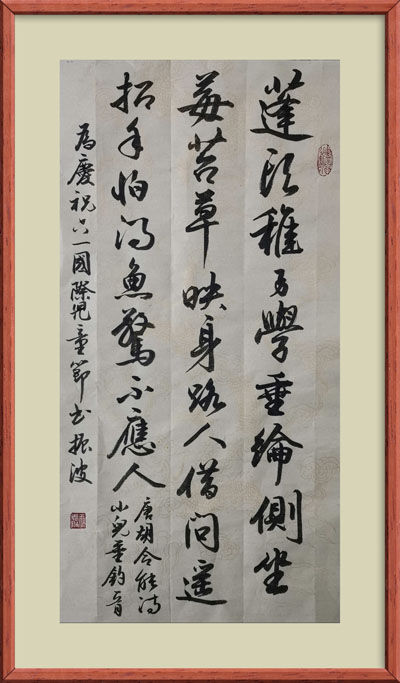 蓬头稚子學垂綸側坐
莓苔草映身路人借问遥
招手怕得魚驚不應人
唐胡令能诗
小兒垂钓一首
為慶祝六一國際兒童節书振波